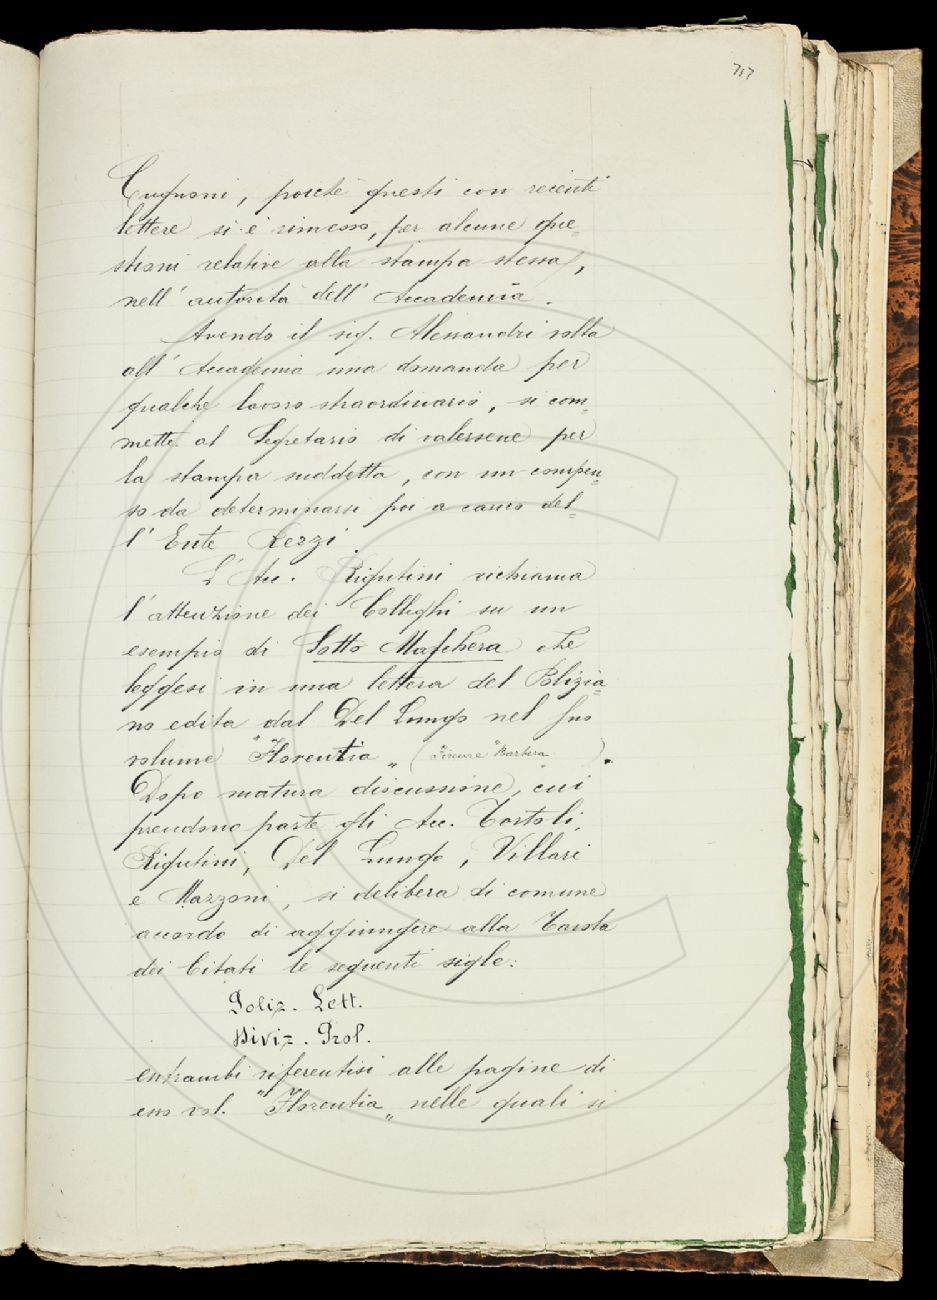 717
Cugnoni, poichè questi con recenti
lettere si è rimesso, per alcune que=
stioni relative alla stampa stessa,
nell' autorità dell' Accademia.
Avendo il sig. Alessandri volta
all' Accademia una domanda per
qualche lavoro straordinario, si com=
mette al Segretario di valersene per
la stampa suddetta, con un compen=
so da determinarsi poi a carico del=
l' Ente Rezzi.
L' Acc. Rigutini richiama
l' attenzione dei Colleghi su un
esempio di Sotto Maschera che
leggesi in una lettera del Polizia=
no edita dal Del Lungo nel suo
volume "Florentia„ (Firenze "Barbèra ).
Dopo matura discussione, cui
prendono parte gli Acc. Tortoli,
Rigutini, Del Lungo, Villari
e Mazzoni, si delibera di comune
accordo di aggiungere alla Tavola
dei Citati le seguenti sigle:
Poliz. Lett.
Diviz. Prol.
entrambi riferentisi alle pagine di
esso vol. "Florentia„ nelle quali si